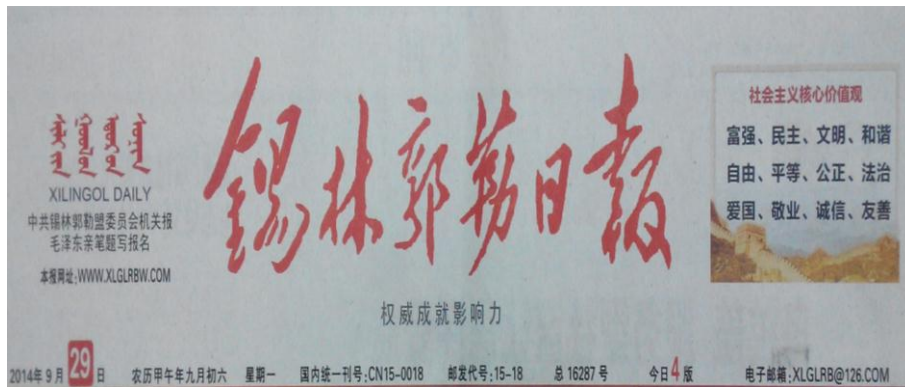 XILINGOL DAILY
中共锡林郭勒盟委员会机关报
毛泽东亲笔题写报名
本报网址:WWW.XLGLRBW.COM
锡林郭勒日报
权威成就影响力
社会主义核心价值观
富强、民主、文明、和谐
自由、平等、公正、法治
爱国、敬业、诚信、友善
2014年9月29日 农历甲午年九月初六 星期一 国内统一刊号:CN15-0018 邮发代号:15-18 总16287号 今日4版 电子邮箱:XLGLRB@126.COM